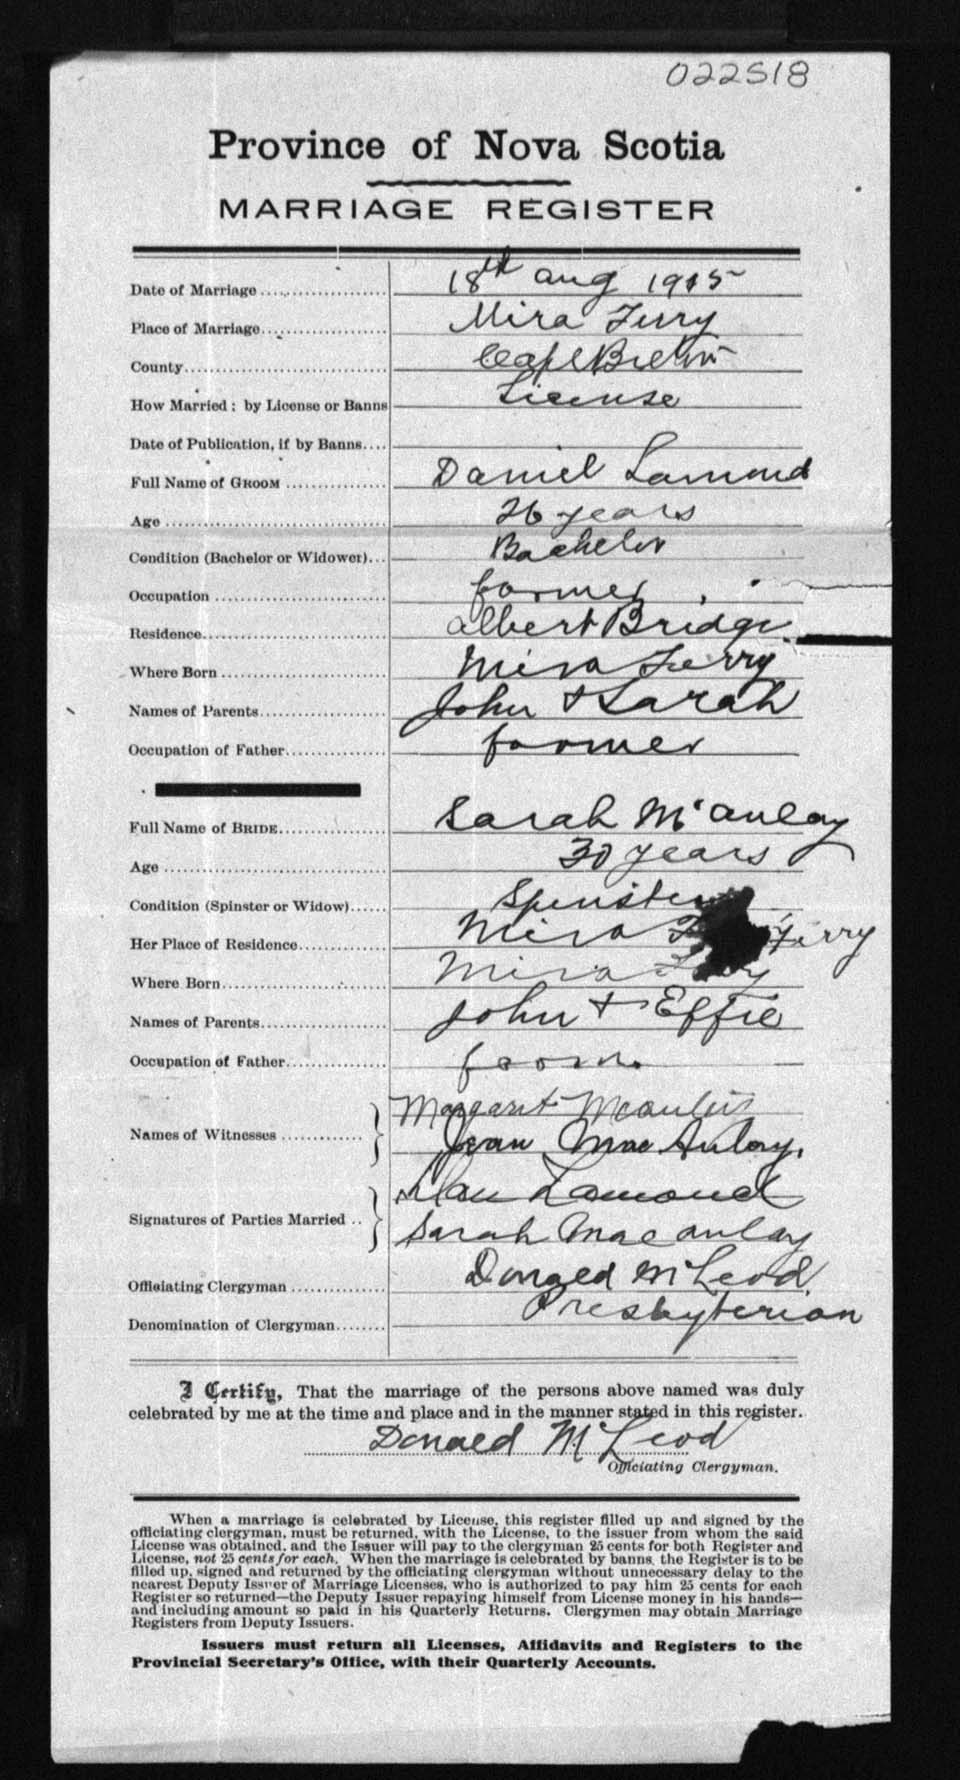 022518
Province of Nova Scotia
MARRIAGE REGISTER
Date of Marriage .................... 18th aug 1915
Place of Marriage.................... Mira Ferry
County.................... Cape Breton
How Married: by License or Banns License
Date of Publication, if by Banns....
Full Name of GROOM .................... Daniel Lamond
Age .................... 26 years
Condition (Bachelor or Widower)... Bachelor
Occupation .................... farmer
Residence.................... albert Bridge
Where Born .................... Mira Ferry
Names of Parents.................... John + Sarah
Occupation of Father................ farmer
Full Name of BRIDE.................... Sarah McAulay
Age .................... 30 years
Condition (Spinster or Widow)...... Spinster
Her Place of Residence............... Mira Ferry
Where Born.................... Mira Ferry
Names of Parents.................... John + Effie
Occupation of Father................ farm
Names of Witnesses ............. Margaret
Jean MacAulay.
Signatures of Parties Married .. Dan Lamond
Sarah Macaulay
Officiating Clergyman ............... Donald McLeod
Denomination of Clergyman........ Presbyterian
I Certify, That the marriage of the persons above named was duly
celebrated by me at the time and place and in the manner stated in this register.
Donald McLeod
Officiating Clergyman.
When a marriage is celebrated by License, this register filled up and signed by the
officiating clergyman, must be returned, with the License, to the issuer from whom the said
License was obtained, and the Issuer will pay to the clergyman 25 cents for both Register and
License, not 25 cents for each. When the marriage is celebrated by banns, the Register is to be
filled up, signed and returned by the officiating clergyman without unnecessary delay to the
nearest Deputy Issuer of Marriage Licenses, who is authorized to pay him 25 cents for each
Register so returned—the Deputy Issuer repaying himself from License money in his hands—
and including amount so paid in his Quarterly Returns. Clergymen may obtain Marriage
Registers from Deputy Issuers.
Issuers must return all Licenses, Affidavits and Registers to the
Provincial Secretary's Office, with their Quarterly Accounts.